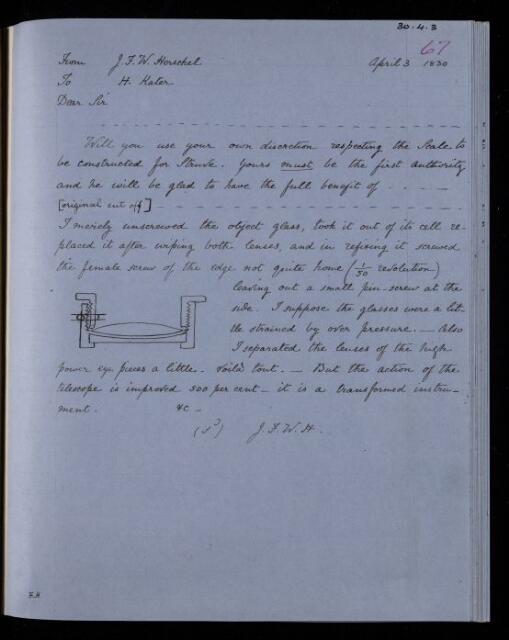 30.4.3
67
From J.F.W. Herschel April 3 1830
To H. Kater
Dear Sir
Will you use your own discretion respecting the Scale to
be constructed for Struve. Yours must be the first authority
and he will be glad to have the full benefit of
[original cut off]
I merely unscrewed the object glass, took it out of its cell re-
placed it after wiping both lenses, and in refixing it screwed
the female screw of the edge not quite home (1/50 revolution)
leaving out a small pin-screw at the
side. I suppose the glasses were a lit-
tle strained by over pressure. — Also
I separated the lenses of the high
power eye pieces a little. Voilà tout. — But the action of the
telescope is improved 500 per cent — it is a transformed instru-
ment. &c —
(sd) J.F.W.H.